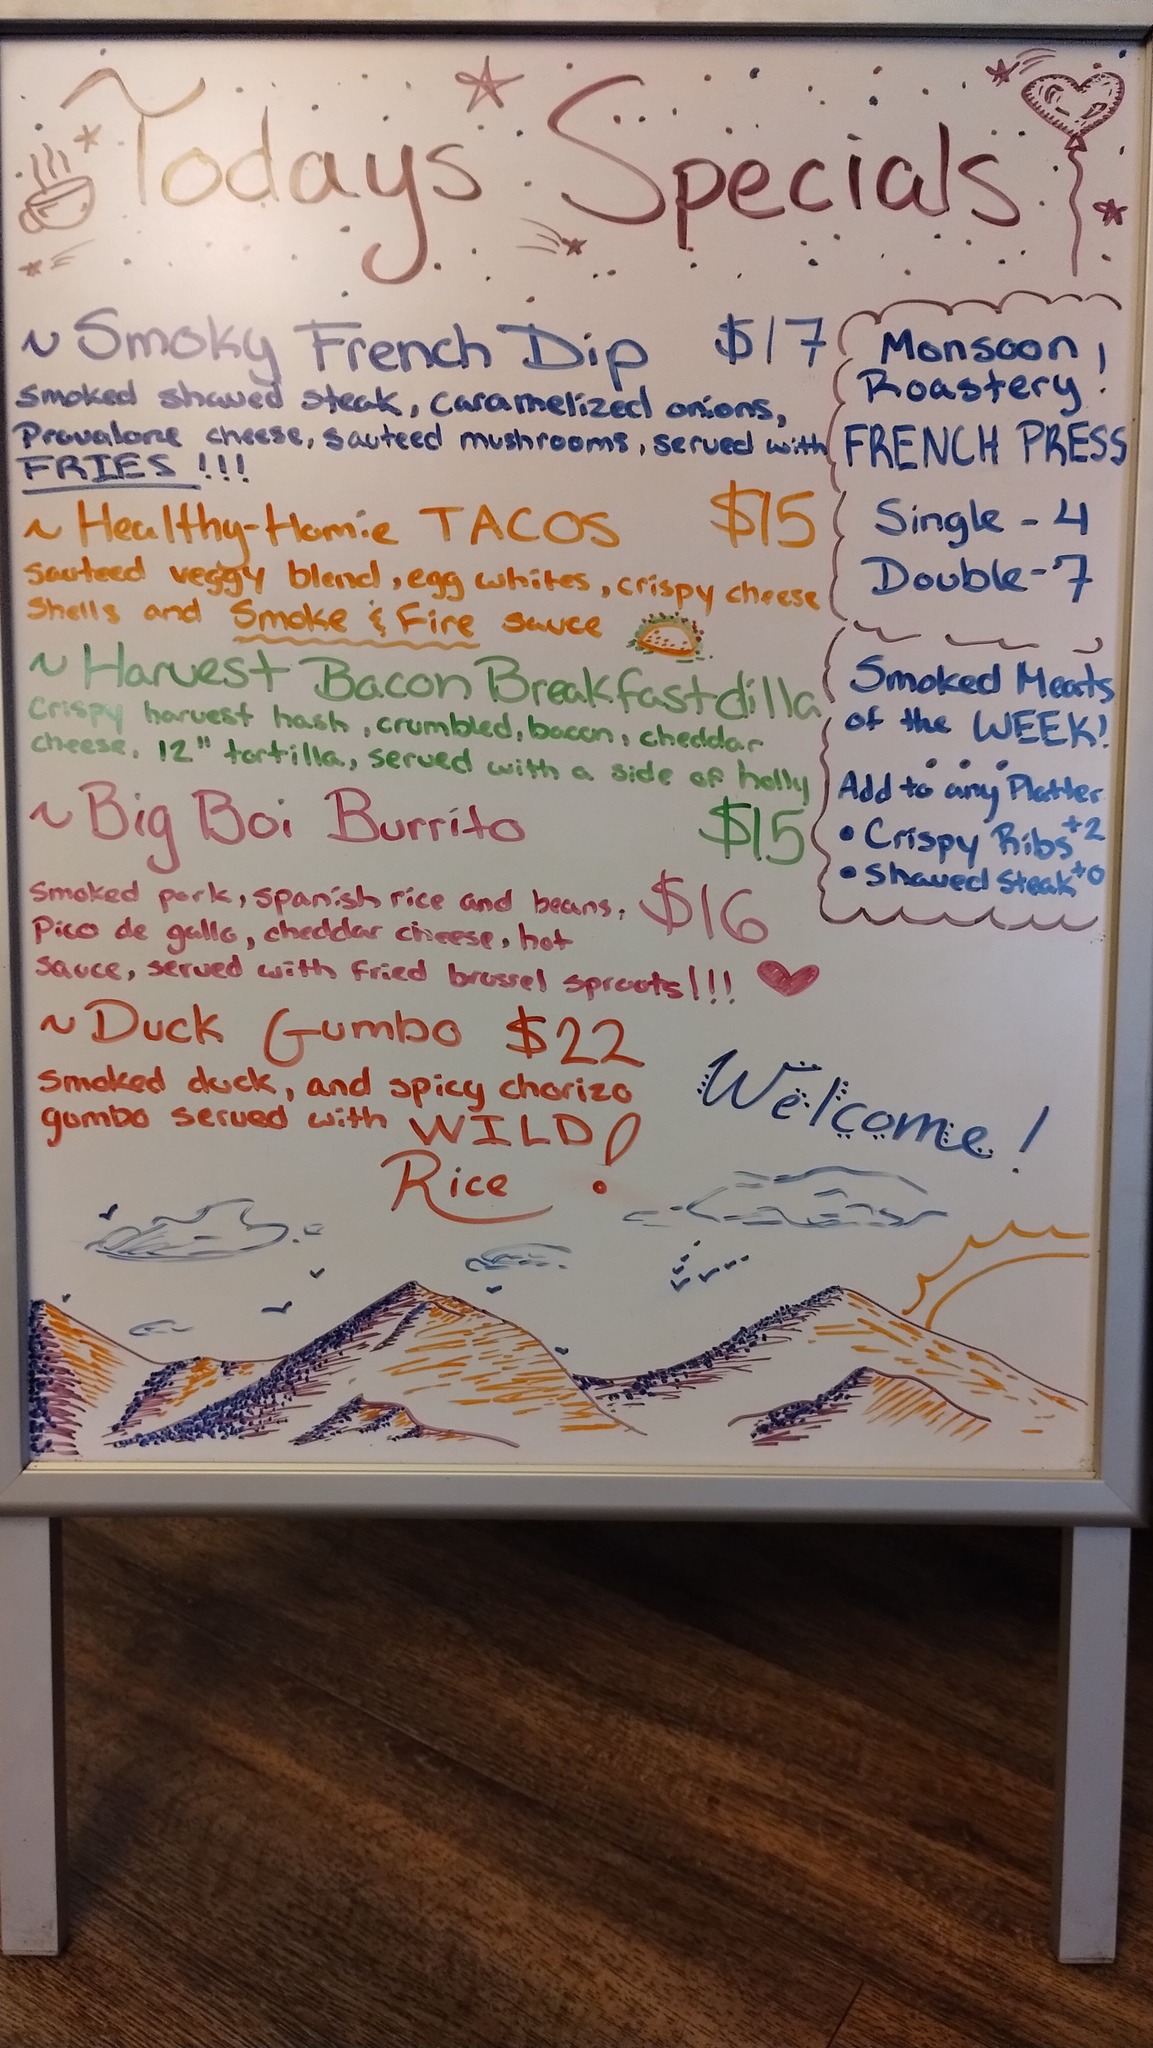 Todays Specials
~ Smoky French Dip $17
Smoked shaved steak, caramelized onions,
Provalone cheese, sauteed mushrooms, served with
FRIES !!!
~ Healthy-Homie TACOS $15
sauteed veggy blend, egg whites, crispy cheese
shells and Smoke & Fire sauce
~ Harvest Bacon Breakfastdilla
crispy harvest hash, crumbled, bacon, cheddar
cheese, 12" tortilla, served with a side of holly
$15
~ Big Boi Burrito
smoked pork, spanish rice and beans, $16
Pico de gallo, cheddar cheese, hot
sauce, served with fried brussel sprouts!!!
~ Duck Gumbo $22
smoked duck, and spicy chorizo
gumbo served with WILD
Rice !
Monsoon
Roastery!
FRENCH PRESS
Single - 4
Double - 7
Smoked Meats
of the WEEK!
Add to any Platter
• Crispy Ribs +2
• Shaved Steak +0
Welcome!